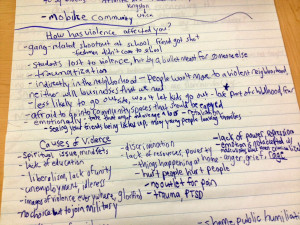 Kingdom
- Mobilize Community
Union
How has violence affected you?
- gang-related shootout at school, friend got shot
- teacher didn't come to school
- Students lost to violence, hit by a bullet meant for someone else
- traumatization
- indirectly in the neighborhood - People won't move to a violent neighborhood,
either will businesses that we need
- less likely to go outside, won't let kids go out - lack part of childhood, fear
- afraid to go into community spaces that should be
- emotional
- seeing your friends being locked up, many young people leaving families
Causes of Violence
- Spiritual issue, mindsets
- lack of education
- liberalism, lack of unity
- unemployment, illness
- images of violence everywhere, glorified
- no choice but to join military
- discrimination
- lack of resources, poverty
- things happening at home - anger, grief, rage
- hurt people hurt people
- no outlet for pain
- trauma, PTSD
- lack of power, oppression
- emotion
- shame, public humiliation